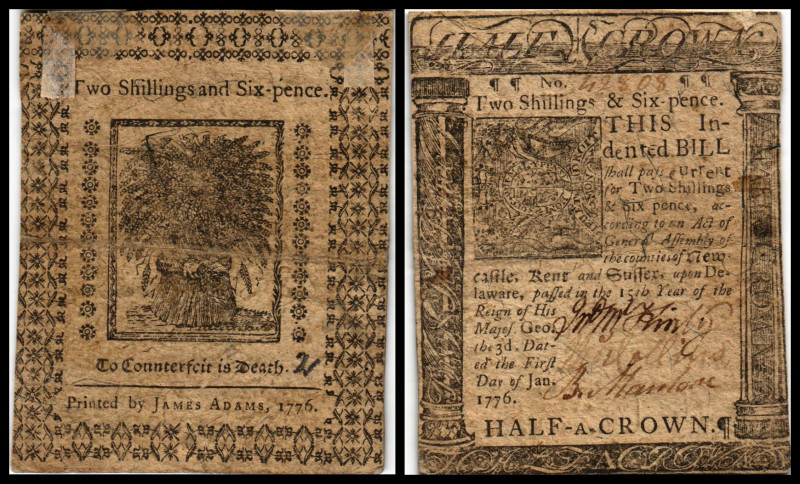 Two Shillings and Six-pence.
To Counterfeit is Death.
2
Printed by JAMES ADAMS, 1776.
HALF CROWN
¶ ¶ No. ¶ ¶
Two Shillings & Six-pence.
THIS In-
dented BILL
shall pass current
for Two Shillings
& Six pence, ac-
cording to an Act of
General Assembly of
the counties of New-
castle, Kent and Sussex, upon De-
laware, passed in the 15th Year of the
Reign of His
Majes. Geo.
the 3d. Dat-
ed the First
Day of Jan.
1776.
HALF-A-CROWN.¶
A